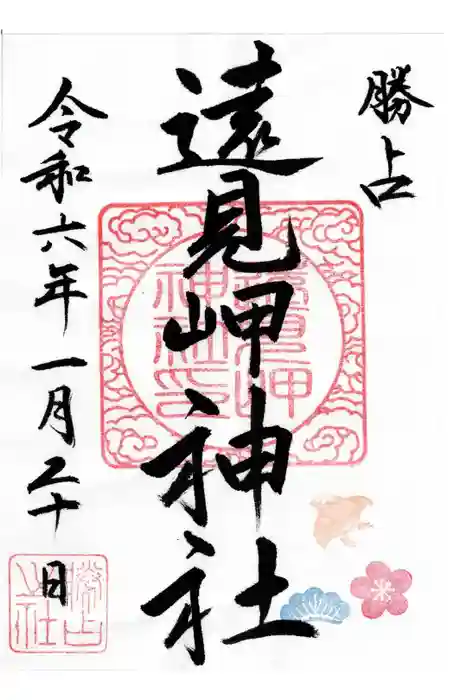 勝占
遠見岬神社
令和六年一月二十日
遠見岬
神社印